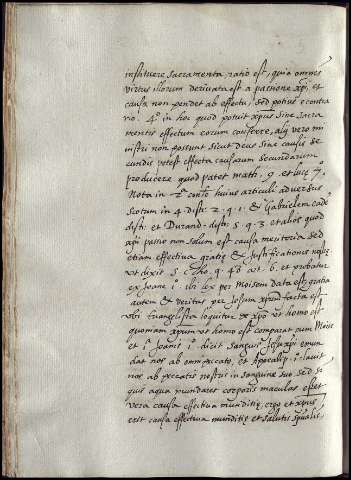 instituere sacramenta, ratio est, quia omnis
virtus illorum derivata est a passione xpi, et
causa non pendet ab effectu, sed potius e contra
rio. 4º in hoc quod potuit xpus sine sacra
mentis effectum eorum conferre, alij vero mi
nistri non possunt sicut deus sine causis se
cundis potest effecta causarum secundarum
producere, quod patet math. 9. et luce 7.
Nota in 2ª huius articuli adversus
scotum in 4. dist. 2. q. 1. & Gabrielem eadē
dist. et Durand. dist. 5. q. 3. et alios quod
xpi passio non solum est causa meritoria sed
etiam effectiva gratię & Justificationis
ut dixit S. Tho. q. 48 art. 6. et probatur
ex Joane 1. ibi lex per Moisem data est gratia
autem & veritas per Jesum xpum facta est
ubi Evangelista loquitur de xpo ut homo est
quoniam xpum ut homo est comparat cum Moise
et 1. Joanis 1. dicit sanguis Jesu xpi emun
dat nos ab omni peccato, et Apocalip. 1. lavit
nos a peccatis nostris in sanguine suo sed si
quis aqua mundaret corporis maculas esset
vera causa effectiva munditię, ergo et xpus
erit causa effectiva munditię et salutis spūalis.